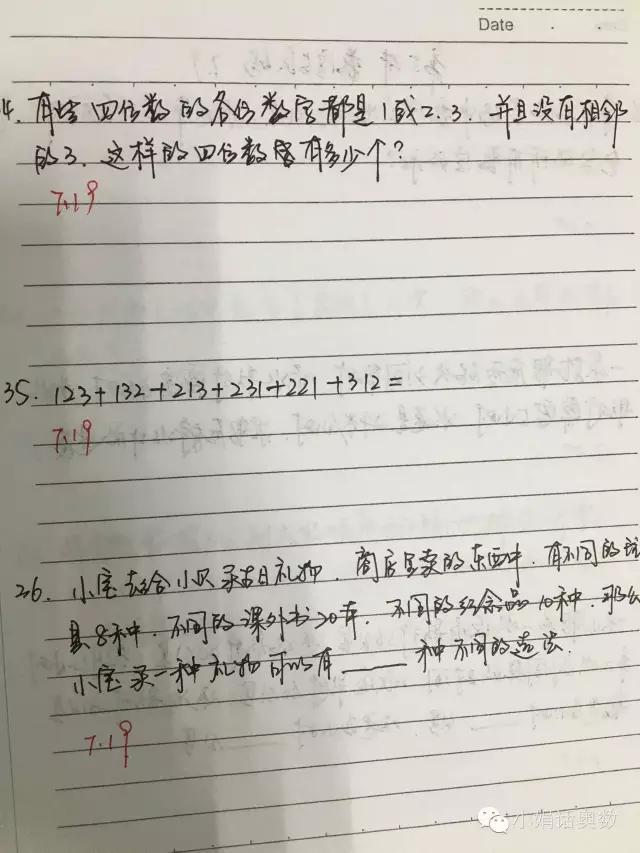 Date
4. 有些四位数的各位数字都是1或2.3. 并且没有相邻
的3. 这样的四位数有多少个?
7.19
35. 123+132+213+231+221+312=
7.19
36. 小宝去给小贝买生日礼物, 商店里卖的东西中, 有不同的玩
具8种, 不同的课外书20本, 不同的纪念品10种, 那么
小宝买一种礼物可以有____种不同的选法.
7.19
小娟话奥数